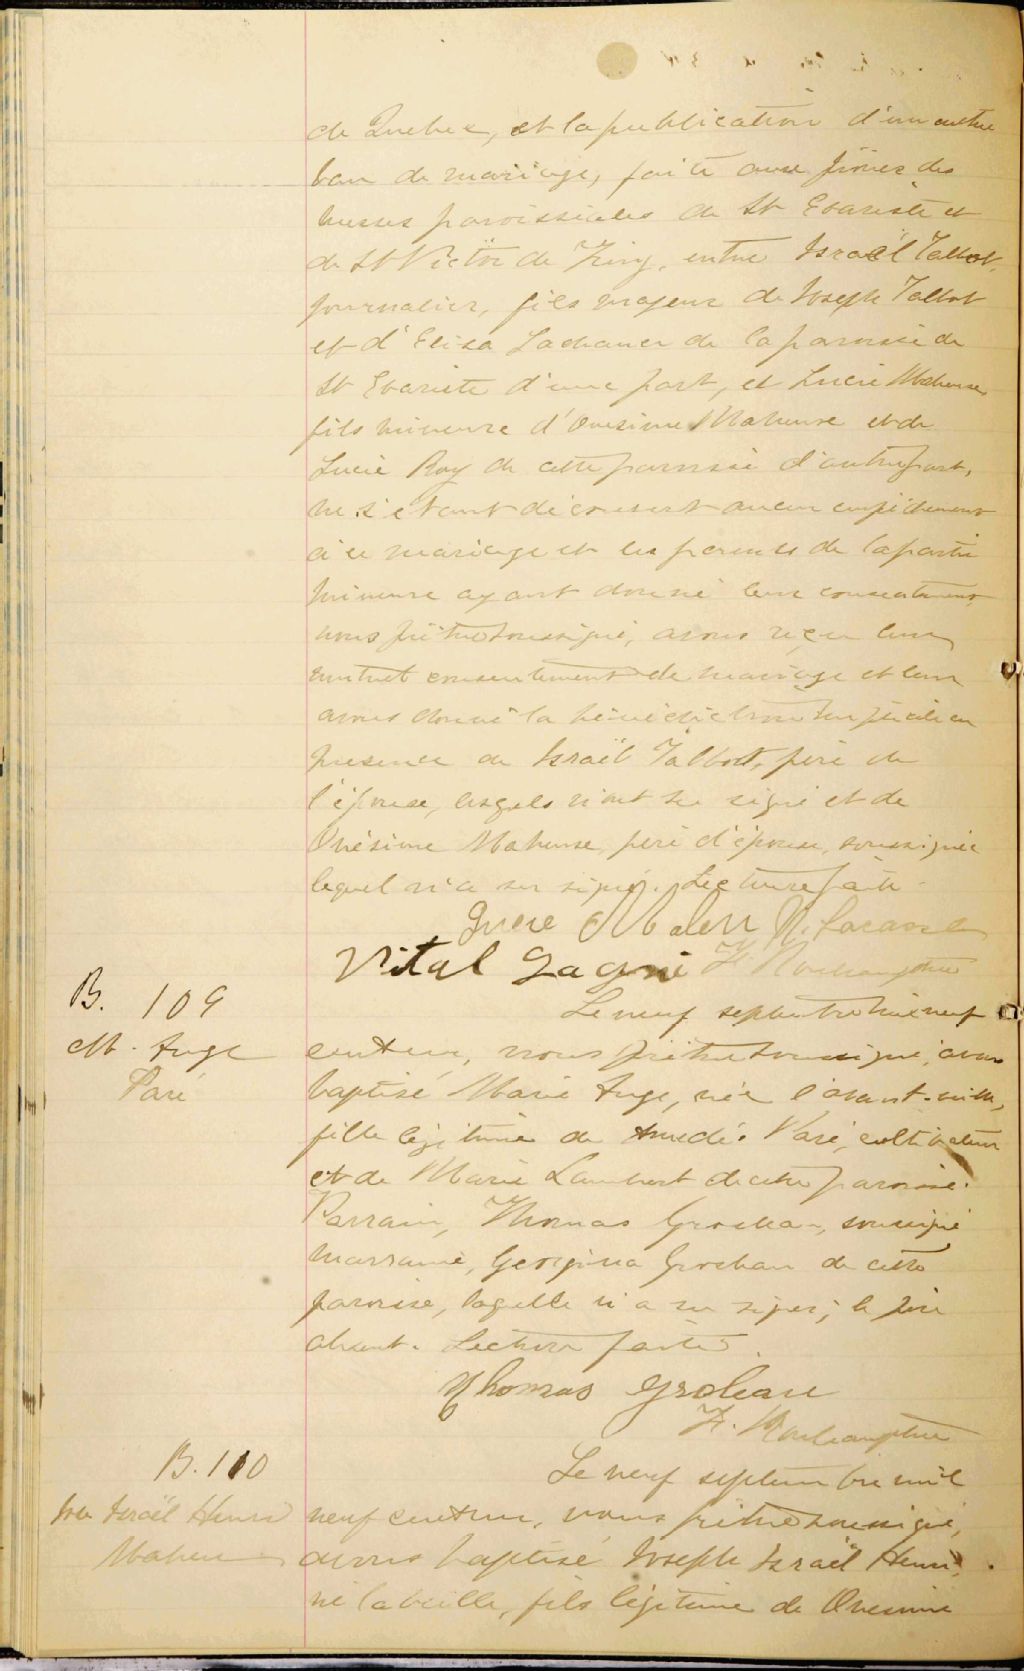 de Quebec, et la publication d'un autre
ban de mariage, faite aux prônes des
messes paroissiales de St Evariste et
de St Victor de Tring, entre Israël Talbot,
journalier, fils majeur de Joseph Talbot
et d'Eliza Lachance de la paroisse de
St Evariste d'une part, et Lucie Maheuse
fils mineure d'Onésime Maheuse et de
Lucie Roy de cette paroisse d'autre part,
ne s'étant découvert aucun empêchement
à ce mariage et les parents de la partie
mineure ayant donné leur consentement,
nous prêtre soussigné, avons reçu leur
mutuel consentement de mariage et leur
avons donné la bénédiction nuptiale en
presence de Israël Talbot, père de
l'épouse, lesquels n'ont su signé et de
Onésime Maheuse, père d'épouse, soussignée
lequel n'a su signé. Lecture faite.
Vital Gagné
B. 109
M. Ange
Paré
Le neuf septembre mil neuf
cent un, nous prêtre soussigné, avons
baptisé Marie Ange, née l'avant-veille,
fille légitime de Amedé Paré, cultivateur
et de Marie Lambert de cette paroisse.
Parrain, Thomas Groleau, soussigné
marraine, Georgina Groleau de cette
paroisse, laquelle n'a su signer; le père
absent. Lecture faite.
Thomas Groleau
B. 110
Jos. Israël Henri
Maheu
Le neuf septembre mil
neuf cent un, nous prêtre soussigné,
avons baptisé Joseph Israël Henri,
né la veille, fils légitime de Onesime